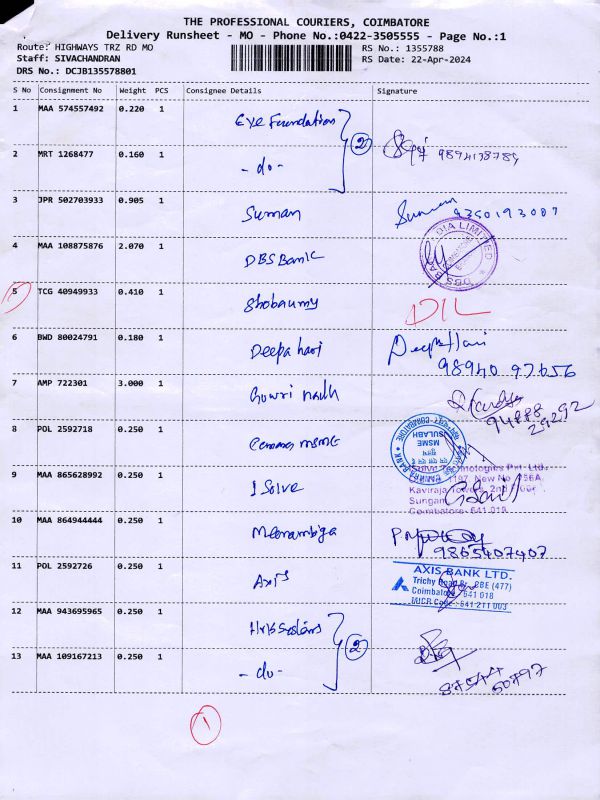 THE PROFESSIONAL COURIERS, COIMBATORE
Delivery Runsheet - MO - Phone No.:0422-3505555 - Page No.:1
Route: HIGHWAYS TRZ RD MO RS No.: 1355788
Staff: SIVACHANDRAN RS Date: 22-Apr-2024
DRS No.: DCJB135578801
S No Consignment No Weight PCS Consignee Details Signature
1 MAA 574557492 0.220 1 Eye Foundation
2 MRT 1268477 0.160 1 -do- 2
3 JPR 502703933 0.905 1 Suman Suman
4 MAA 108875876 2.070 1 DBS Bank
5 TCG 40949933 0.410 1 DIL
6 BWD 80024791 0.180 1 Deepa hari Deepa Hari
98940 97656
7 AMP 722301 3.000 1 Gowri
94888
29292
8 POL 2592718 0.250 1 MSME
CANARA BANK
MSME
SULABH
9 MAA 865628992 0.250 1 I Solve
iSolve Technologies Pvt. Ltd.
Kaviraja Towers, 2nd
Sungam
Coimbatore - 641 018
10 MAA 864944444 0.250 1 Meenambiga
9865407407
11 POL 2592726 0.250 1 Axis
AXIS BANK LTD.
Trichy CBE (477)
Coimbatore 641 018
MICR Code - 641 211 003
12 MAA 943695965 0.250 1
13 MAA 109167213 0.250 1 -do- 2
87544
50797
1